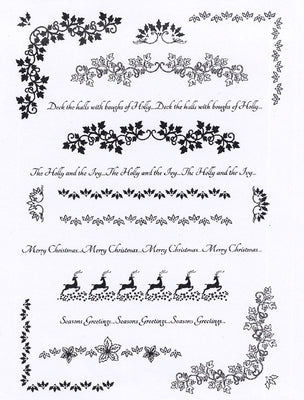 Deck the halls with boughs of Holly...Deck the halls with boughs of Holly...
The Holly and the Ivy...The Holly and the Ivy...The Holly and the Ivy...
Merry Christmas...Merry Christmas...Merry Christmas...Merry Christmas...
Seasons Greetings...Seasons Greetings...Seasons Greetings...